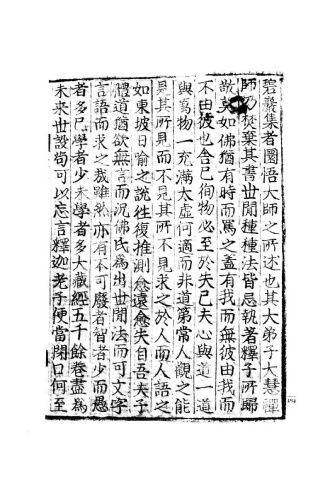 碧巖集者圜悟大師之所述也其大弟子大慧禪
師乃焚棄其書世間種種法皆忌執著釋子所歸
敬莫如佛猶有時而罵之蓋有我而無彼由我而
不由彼也舍己徇物必至於失己夫心與道一道
與萬物一充滿太虛何適而非道第常人觀之能
見其所見而不見其所不見求之於人而人語之
如東坡日喻之說往復推測愈遠愈失自吾夫子
體道猶欲無言而況佛氏為出世間法而可文字
言語而求之哉雖然亦有不可廢者智者少而愚
者多已學者少未學者多大藏經五千餘卷盡為
未來世設苟可以忘言釋迦老子便當閉口何至
四